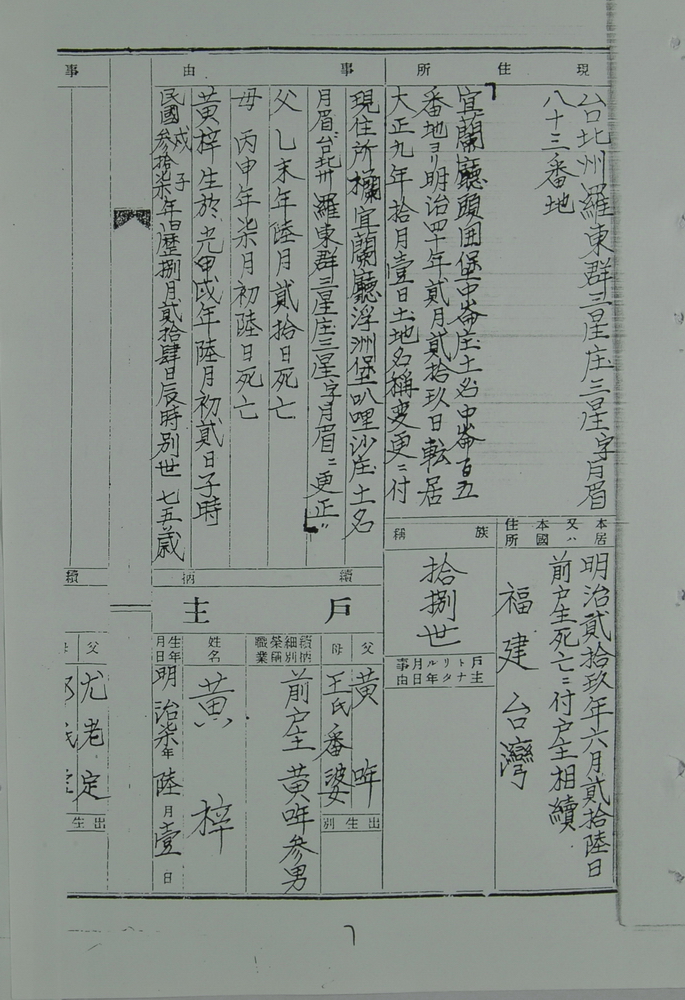 現住所
台北州羅東群三星庄三星字月眉
八十三番地
事由
宜蘭廳頭囲堡中崙庄土名中崙百五
番地ヨリ明治四十年貳月貳拾玖日転居
大正九年拾月壹日土地名稱変更ニ付
現住所欄宜蘭廳浮洲堡叭哩沙庄土名
月眉ヲ台北州羅東群三星庄三星字月眉ニ更正
父乚未年陸月貳拾日死亡
母 丙申年柒月初陸日死亡
黃梓生於光甲戌年陸月初貳日子時
戊子
民國參拾柒年旧歷捌月貳拾肆日辰時別世 七五歲
本居又ハ本國住所
福建台灣
族稱
拾捌世
戶主トナリタル年月日事由
明治貳拾玖年六月貳拾陸日
前戶主死亡ニ付戶主相續
續柄
戶主
父
黃哖
母
王氏番婆
出生別
續柄細別榮稱職業
前戶主黃哖參男
姓名
黃梓
生年月日
明治柒年陸月壹日
事
續
父
尤老定
母
出生
7